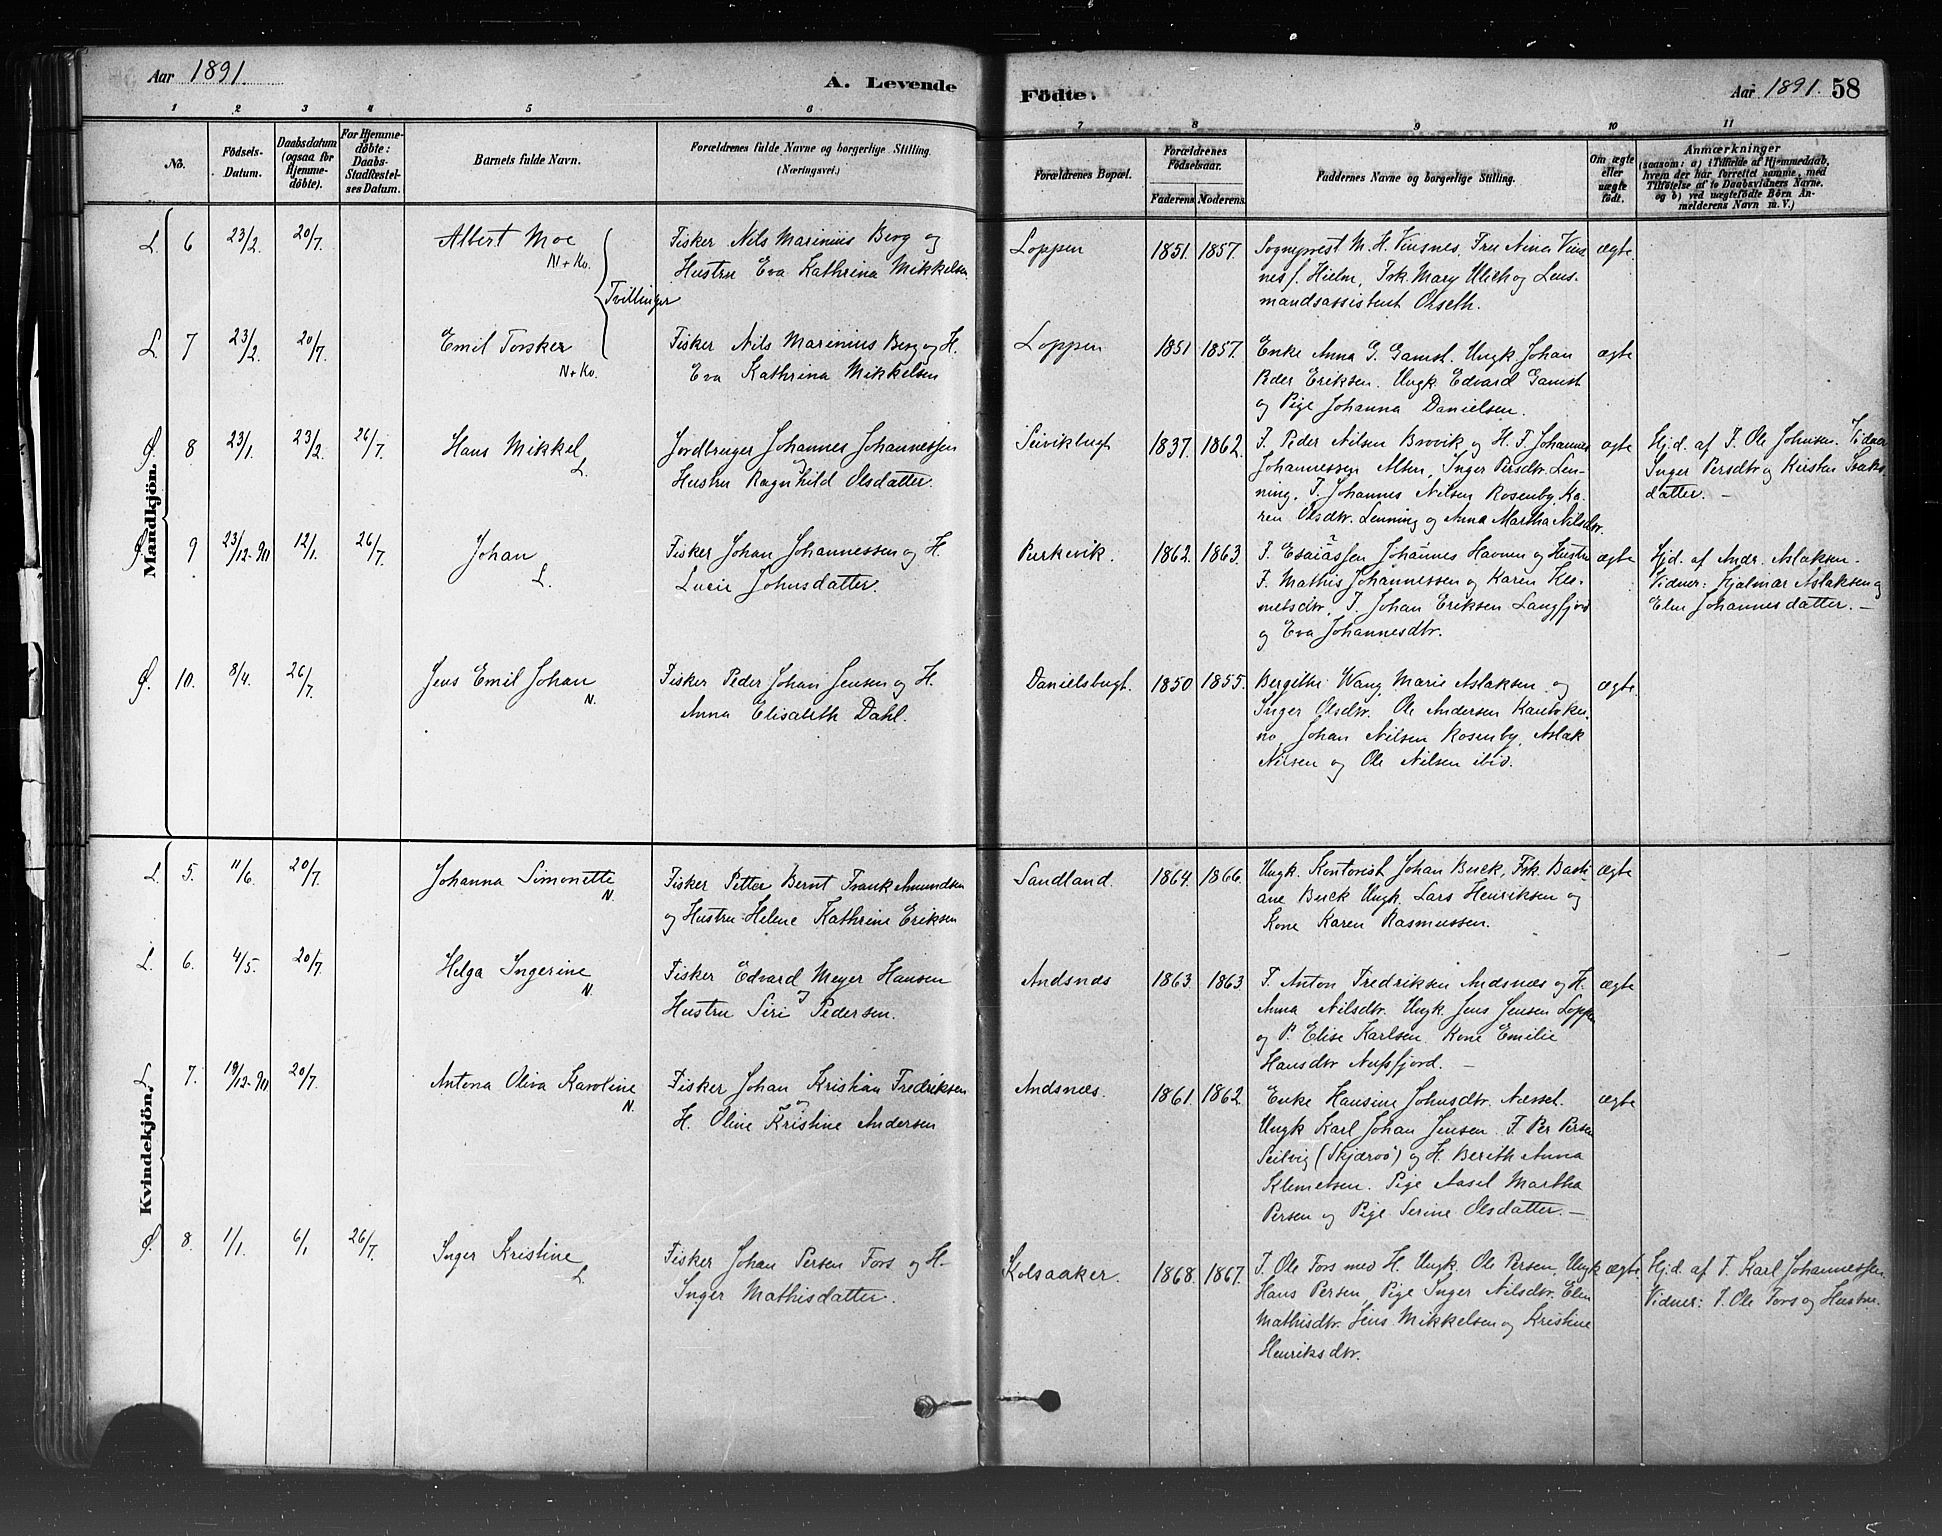 Aar 1891.
A. Levende
Födte.
Aar 1891. 58
1 2 3 4 5 6 7 8 9 10 11
No.
Födsels-
Datum.
Daabsdatum
(ogsaa for
Hjemme-
döbte).
For Hjemme-
döbte:
Daabs-
Stadfæstel-
ses Datum.
Barnets fulde Navn.
Forældrenes fulde Navne og borgerlige Stilling.
(Næringsvei.)
Forældrenes Bopæl.
Forældrenes
Födselsaar.
Faderens Moderens.
Faddernes Navne og borgerlige Stilling.
Om ægte
eller
uægte
födt.
Anmærkninger
(saasom: a) i Tilfælde af Hjemmedaab,
hvem der har forrettet samme, med
Tilföielse af to Daabsvidners Navne.
og b) ved uægtefödte Börn An-
melderens Navn m. V.)
Mandkjön.
L. 6 23/2 20/7 Albert Moe
N + Kv.
Tvillinger
Fisker Nils Marinius Berg og
Hustru Eva Kathrina Mikkelsen
Loppen 1851. 1857.
Sogneprest M. H. Vinsnes, Fru Nina Vins-
nes f. Hielm, Frk. Mary Ulich og Lens-
mandsassistent Orseth.
ægte.
L. 7 23/2. 20/7. Emil Torsker
N + Kv.
Fisker Nils Marinius Berg og H.
Eva Kathrina Mikkelsen
Loppen 1851 1857.
Enke Anna G. Gamst. Ungk. Johan
Peder Eriksen. Ungk. Edvard Gamst
og Pige Johanna Danielsen.
ægte
Ø. 8 23/1. 23/2. 26/7. Hans Mikkel
L.
Jordbruger Johannes Johannessen
og
Hustru Ragnhild Olsdatter.
Seivikbugt 1837. 1862.
F. Peder Nilsen Brovik og H. F. Johannes
Johannessen Alten, Inger Persdtr. Len-
ning, F. Johannes Nilsen Rosenby, Ka-
ren Olsdtr. Lenning og Anna Martha Nilsdtr.
ægte
Hjd. af F. Ole Johnsen. Vidner
Inger Persdtr og Kirsten Isaks-
datter. —
Ø. 9 23/12. 90 12/1. 26/7. Johan
L.
Fisker Johan Johannessen og H.
Lucie Johnsdatter.
Perkevik. 1862. 1863.
F. Esaiassen Johannes Havnen og Hustru
F. Mathis Johannessen og Karen Kle-
metsdtr, F. Johan Eriksen Langfjord
og Eva Johannesdtr.
ægte
Hjd. af Andr. Aslaksen.
Vidner: Hjalmar Aslaksen og
Elen Johannesdatter. —
Ø. 10. 8/4. 26/7. Jens Emil Johan
N.
Fisker Peder Johan Jensen og H.
Anna Elisabeth Dahl.
Danielsbugt. 1850 1855.
Bergithe Wang, Marie Aslaksen og
Inger Olsdtr. Ole Andersen Kautokei-
no, Johan Nilsen Rosenby, Aslak
Nilsen og Ole Nilsen ibid.
ægte.
Kvindekjön.
L. 5. 11/6. 20/7. Johanna Simonette
N.
Fisker Petter Bernt Frank Amundsen
og Hustru Helene Kathrine Eriksen
Sandland. 1864. 1866.
Ungk. Kontorist Johan Buck, Frk. Basti-
ane Buck Ungk. Lars Henriksen og
Kone Karen Rasmussen.
ægte
L. 6. 4/5. 20/7. Helga Ingerine
N.
Fisker Edvard Meyer Hansen
og
Hustru Siri Pedersen.
Andsnæs 1863. 1863.
F. Anton Fredriksen Andsnæs og H.
Anna Nilsdtr. Ungk. Jens Jensen Loppen
og P. Elise Karlsen. Kone Emilie
Hansdtr Nusfjord. —
ægte
L. 7. 19/12. 90 20/7. Antona Oliva Karoline
N.
Fisker Johan Kristian Fredriksen
og
H. Oline Kristine Andersen
Andsnæs. 1861. 1862.
Enke Hansine Johnsdtr. Næsset.
Ungk Karl Johan Jensen. F. Per Persen
Seilvig (Skjærvö) og H. Berith Anna
Klemetsen. Pige Aasel Martha
Persen og Pige Serine Olsdatter. —
ægte
Ø. 8. 1/1. 6/1 26/7. Inger Kristine
L.
Fisker Johan Persen Fors og H.
Inger Mathisdatter.
Kolsaaker. 1868. 1867.
F. Ole Fors med H. Ungk. Ole Persen, Ungk
Hans Persen, Pige Inger Nilsdtr, Elen
Mathisdtr. Jens Mikkelsen og Kristine
Henriksdtr.
ægte.
Hjd. af F. Karl Johannessen
Vidner: F. Ole Fors og Hustru.